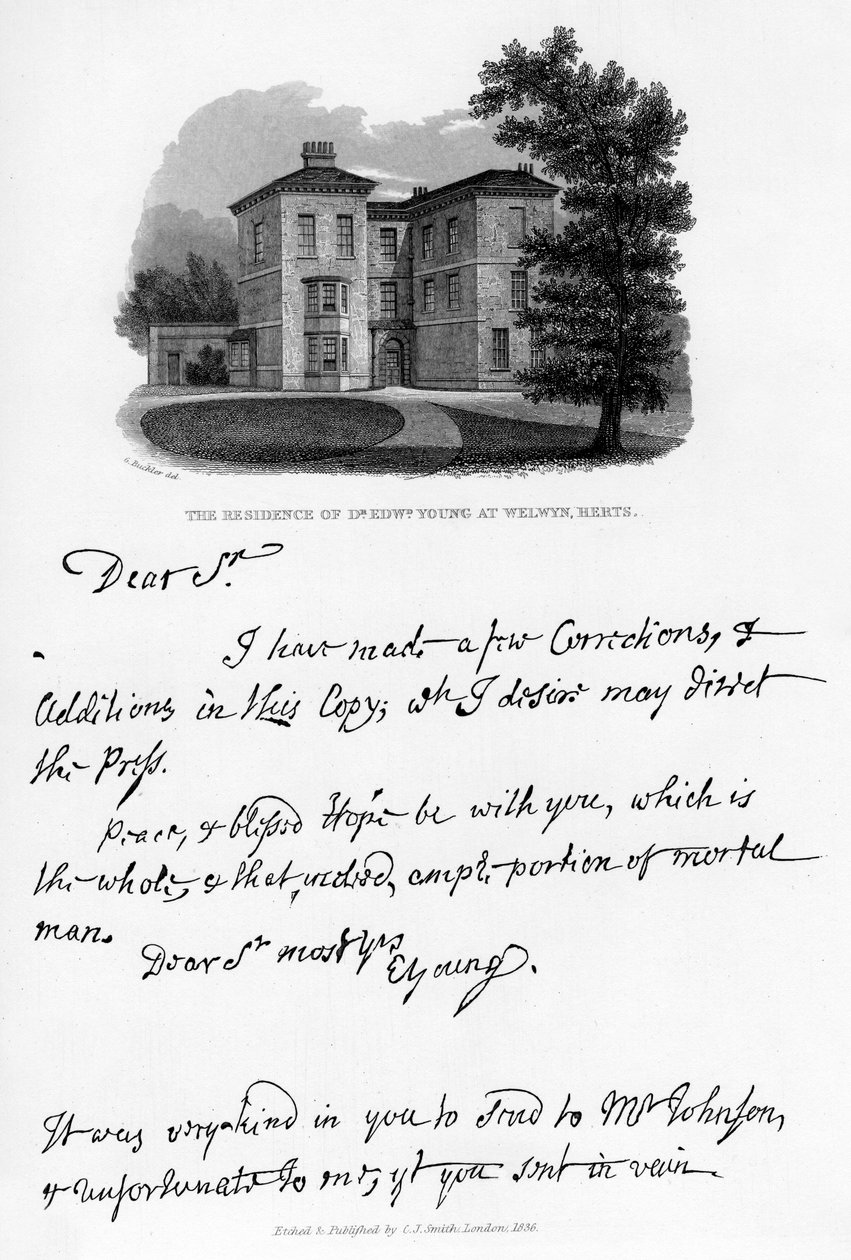 G. Buckler del.
THE RESIDENCE OF Dr. EDWd. YOUNG AT WELWYN, HERTS.
Dear Sr.
I have made a few Corrections, &
Additions in this Copy; wh I desire may direct
the Press.
Peace, & blessed Hope be with you, which is
the whole, & that indeed, ample portion of mortal
man.
Dear Sr most yrs
EYoung.
It was very kind in you to send to Mr Johnson,
& unfortunate to me, yt you sent in vain.
Etched & Published by C. J. Smith, London, 1836.